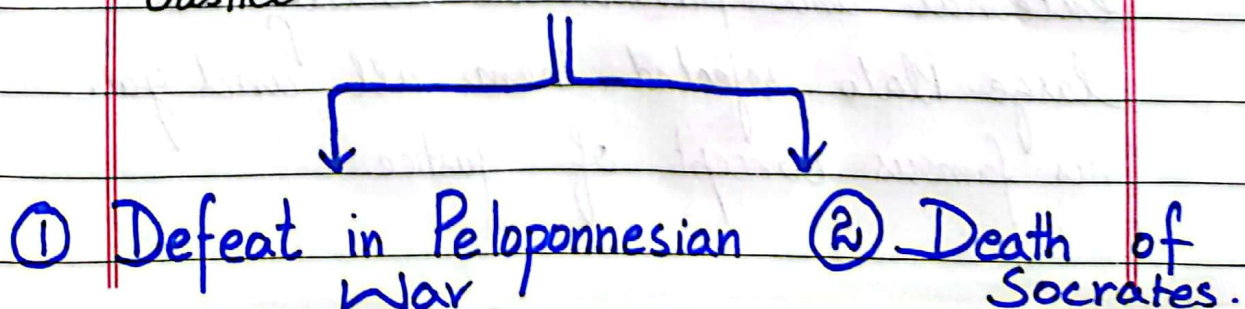 ① Defeat in Peloponnesian ② Death of
War Socrates.